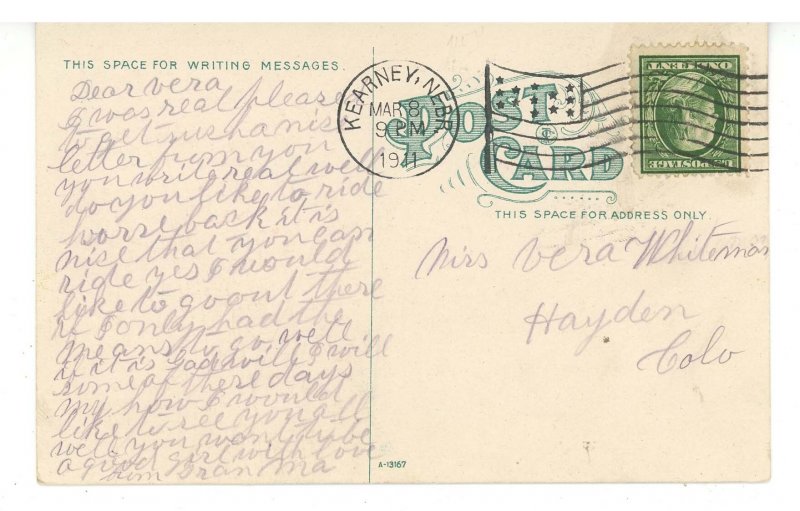 THIS SPACE FOR WRITING MESSAGES.
Dear vera
I was real please
to get such a nise
letter from you
you write real well
do you like to ride
horse back it is
nise that you can
ride yes I would
like to go out there
if I only had the
means to go well
if it is Gods will I will
some of these days
my how I would
like to see you all
well you want to be
a good girl with love
from Gran Ma
KEARNEY, NEBR.
MAR 8
9 PM
1911
POST CARD
THIS SPACE FOR ADDRESS ONLY.
Miss Vera Whiteman
Hayden
Colo
A-13167
U.S. POSTAGE
ONE CENT